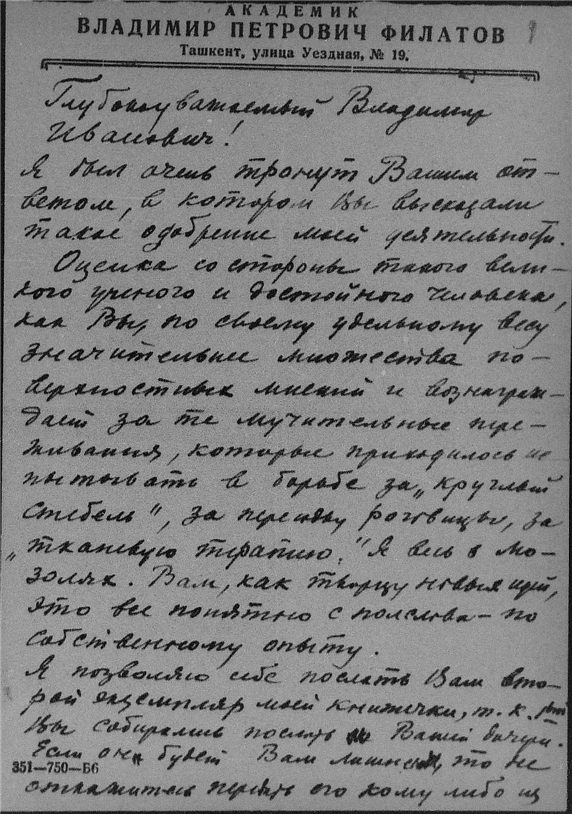 АКАДЕМИК
ВЛАДИМИР ПЕТРОВИЧ ФИЛАТОВ
Ташкент, улица Уездная, № 19.
Глубокоуважаемый Владимир
Иванович!
Я был очень тронут Вашим от-
ветом, в котором Вы высказали
такое одобрение моей деятельности.
Оценка со стороны такого вели-
кого ученого и достойного человека,
как Вы, по своему удельному весу
значительнее множества по-
верхностных мнений и вознаграж-
дает за те мучительные пере-
живания, которые приходилось ис
пытывать в борьбе за „круглый
стебель", за пересадку роговицы, за
„тканевую терапию." Я весь в мо-
золях. Вам, как творцу новых идей,
это все понятно с полслова – по
собственному опыту.
Я позволяю себе послать Вам вто-
рой экземпляр моей книжечки, т. к.
Вы собирались послать Вашей дочери.
Если он будет Вам лишний, то не
351—750—Б6
откажитесь передать его кому либо из